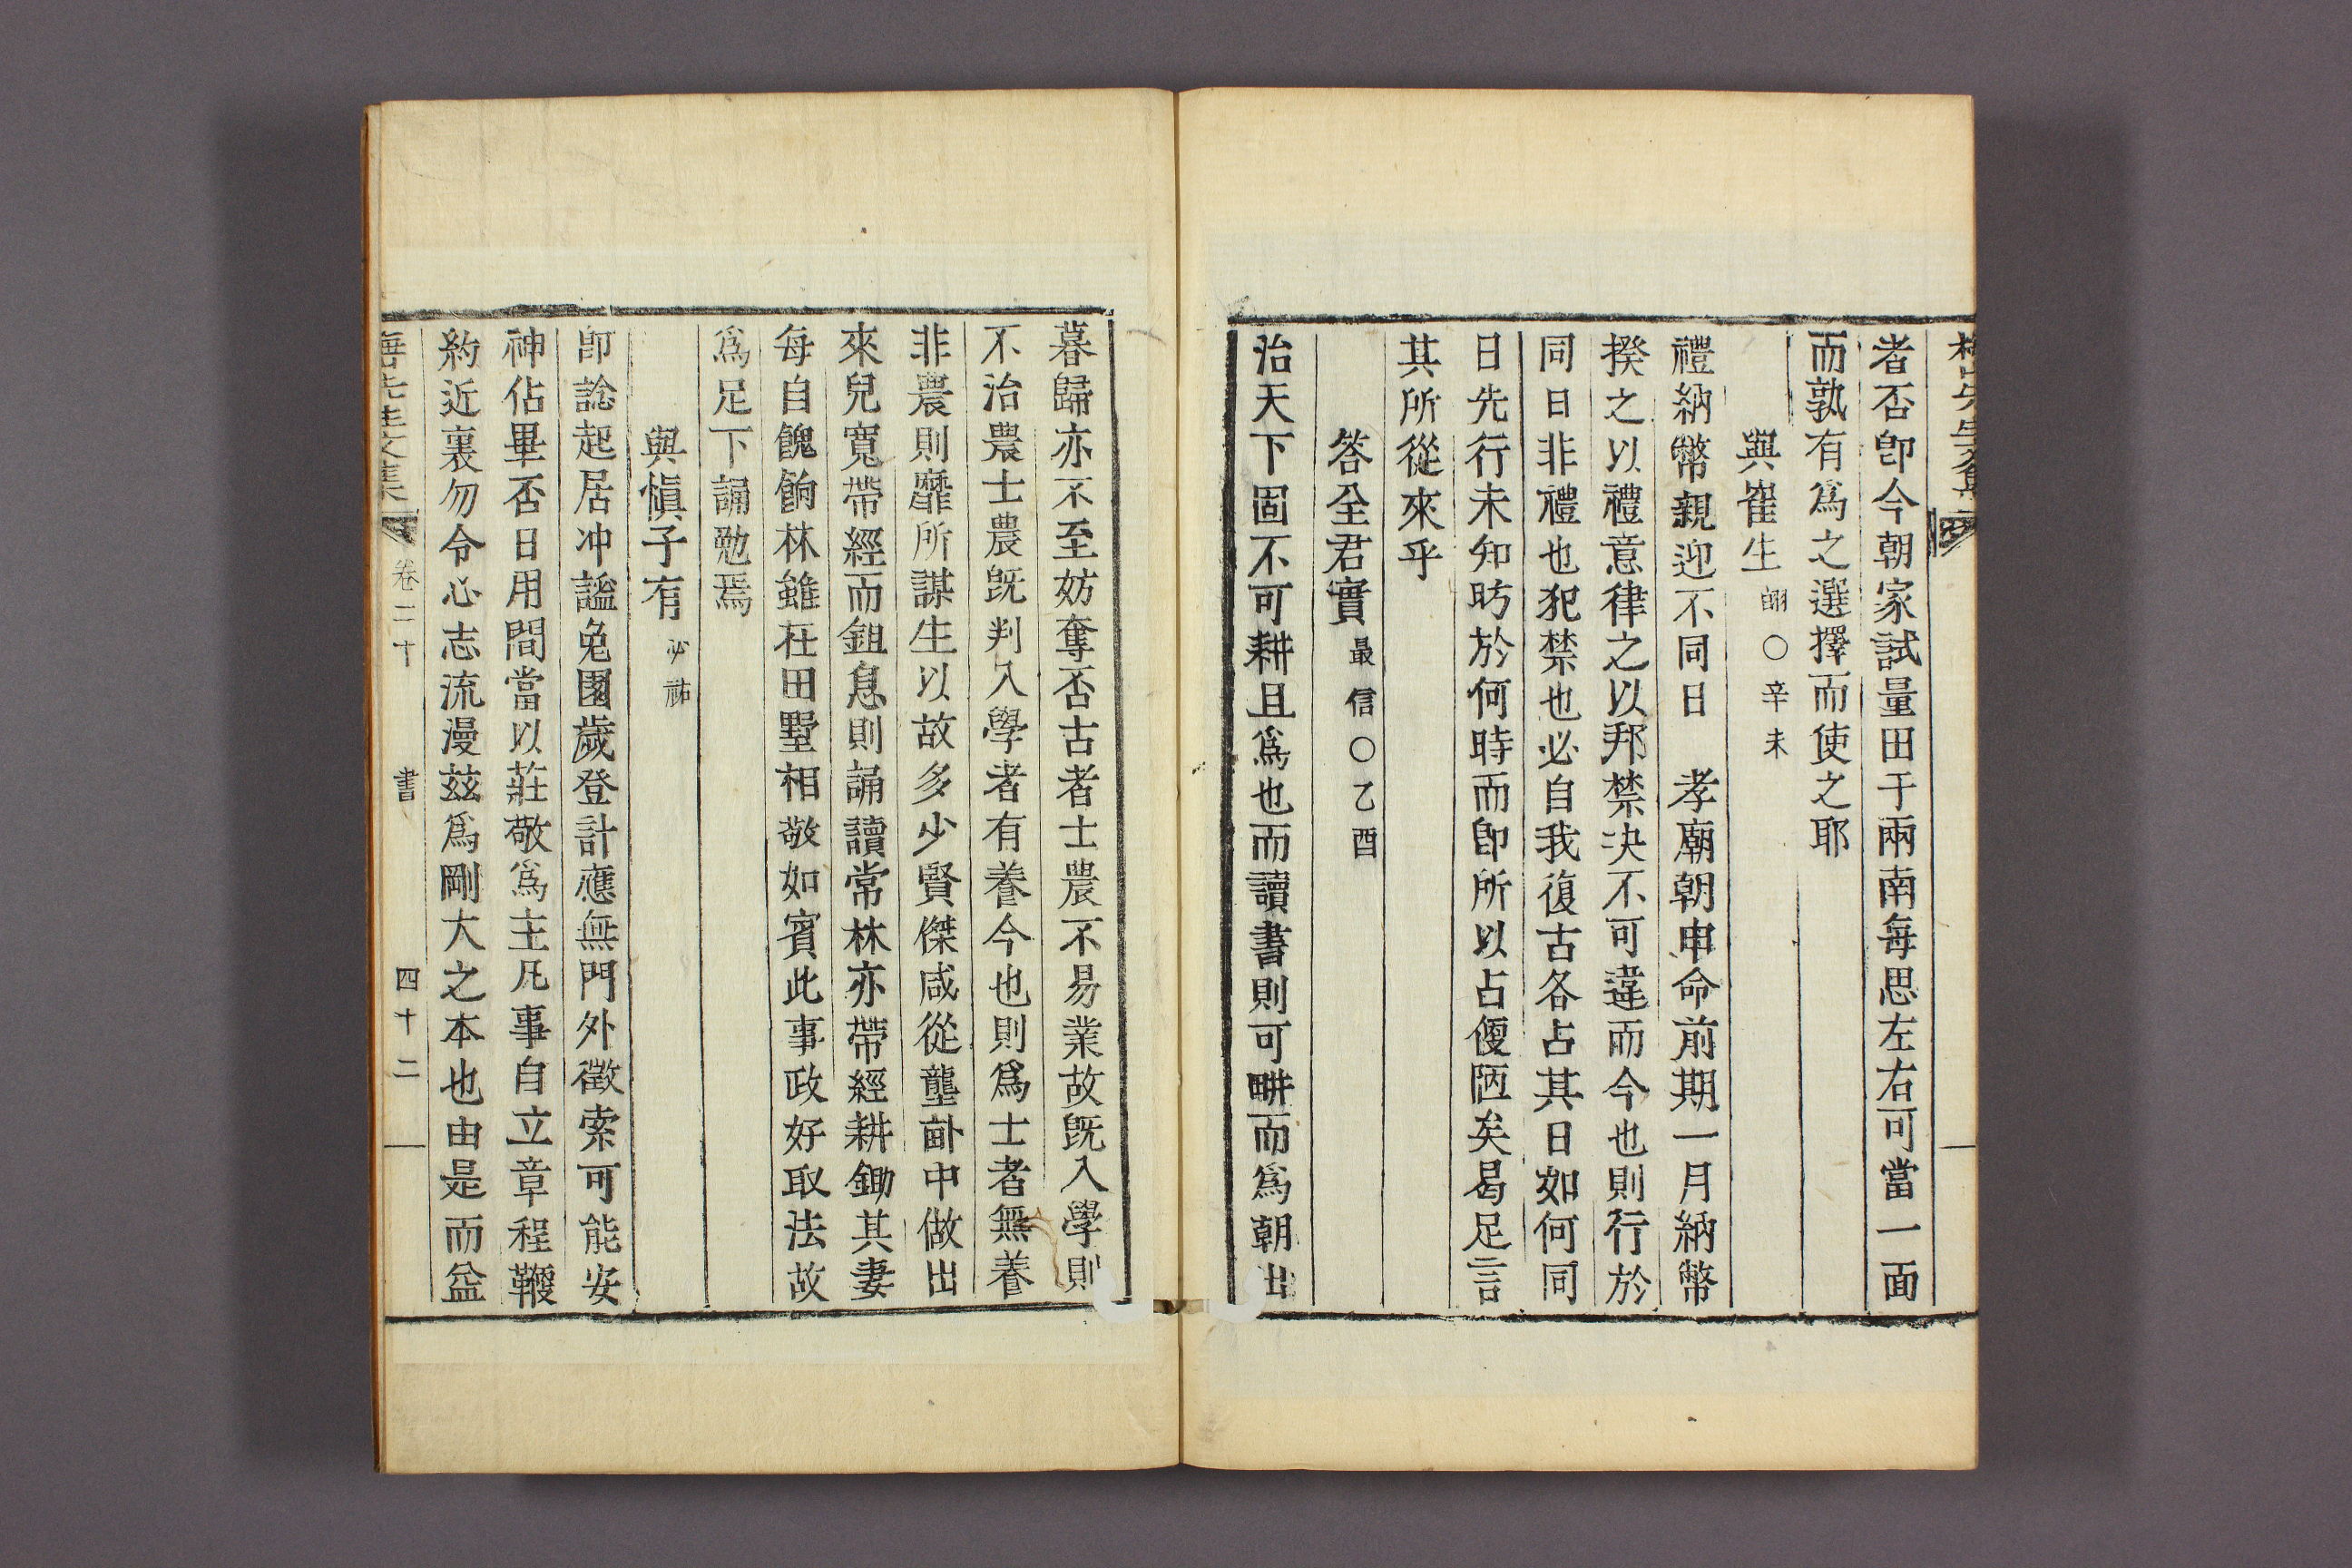 者否卽今朝家試量田于兩南每思左右可當一面
而孰有爲之選擇而使之耶
與崔生 翃○辛未
禮納幣親迎不同日 孝廟朝申命前期一月納幣
揆之以禮意律之以邦禁決不可違而今也則行於
同日非禮也犯禁也必自我復古各占其日如何同
日先行未知昉於何時而卽所以占便陋矣曷足言
其所從來乎
答全君實 最信○乙酉
治天下固不可耕且爲也而讀書則可畊而爲朝出
暮歸亦不至妨奪否古者士農不易業故旣入學則
不治農士農旣判入學者有養今也則爲士者無養
非農則靡所謀生以故多少賢傑咸從壟畝中做出
來兒寬帶經而鉏息則誦讀常林亦帶經耕鋤其妻
每自餽餉林雖在田野相敬如賓此事政好取法故
爲足下誦勉焉
與愼子有 必祐
卽諗起居冲謐兔園歲登計應無門外徵索可能安
神佔畢否日用間當以莊敬爲主凡事自立章程鞭
約近裏勿令心志流漫玆爲剛大之本也由是而益
卷二十 書 四十二